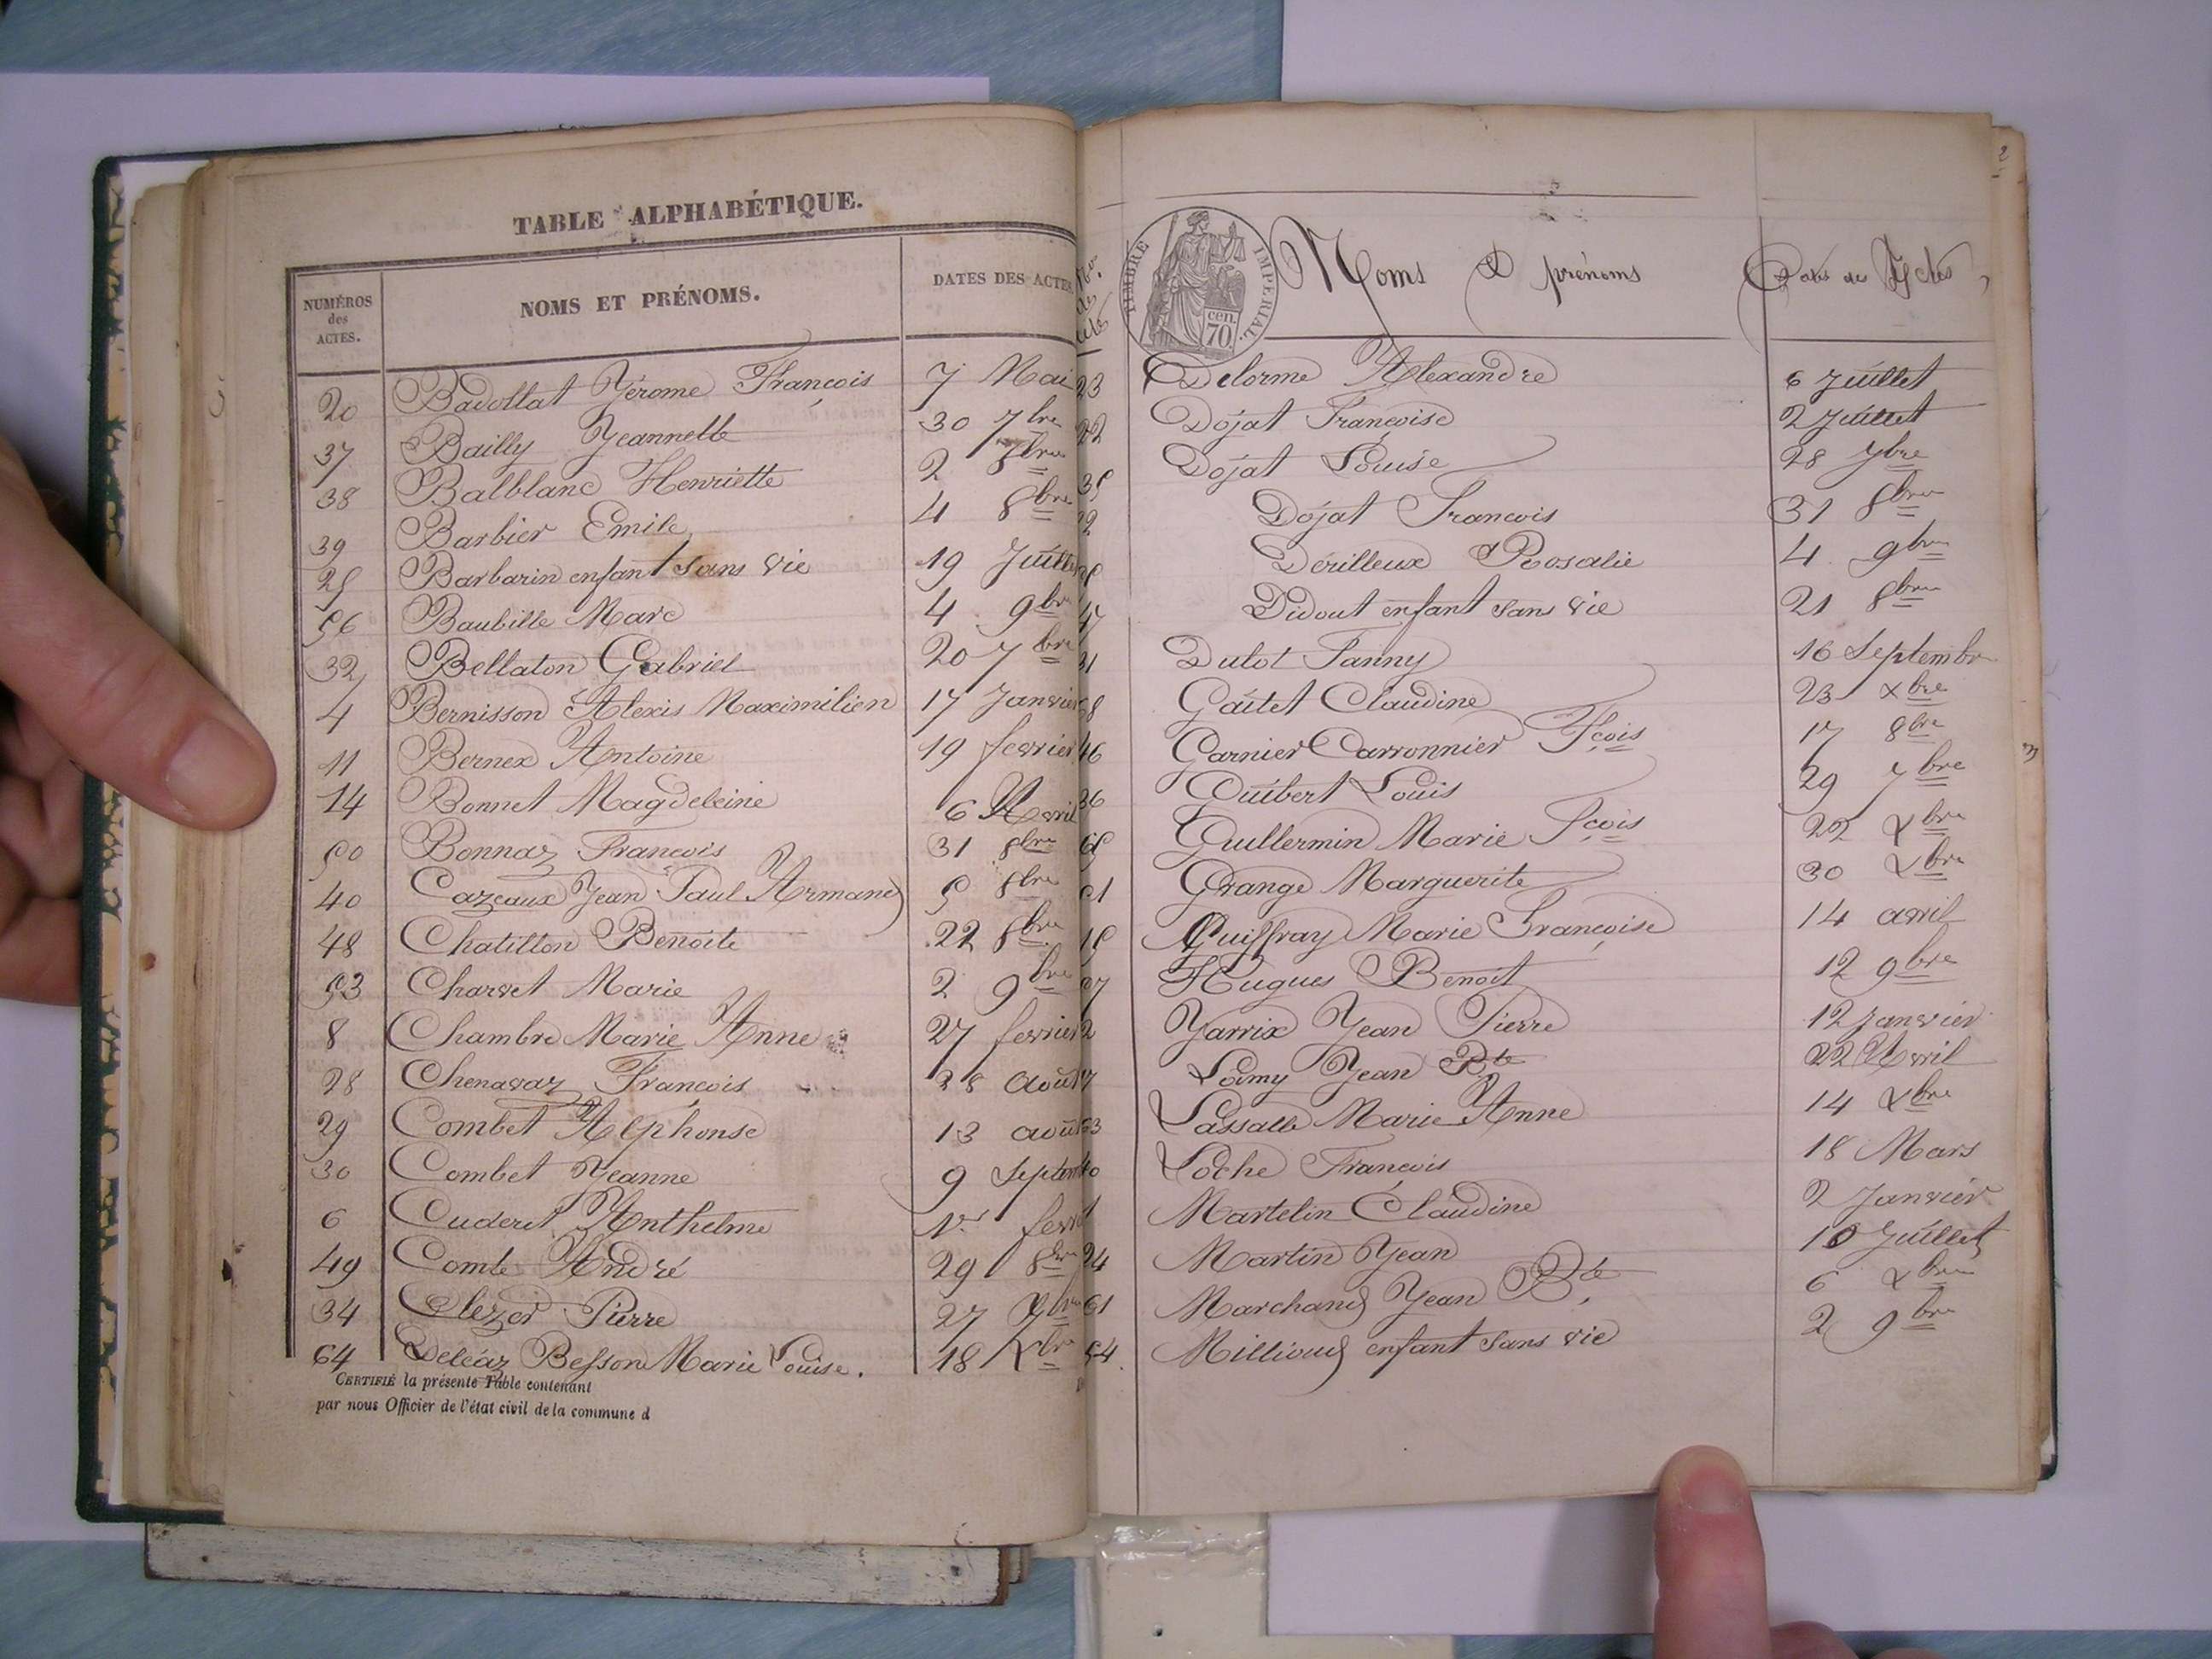 TABLE ALPHABÉTIQUE.
NUMÉROS des ACTES. NOMS ET PRÉNOMS. DATES DES ACTES
20 Badollat Jérome François 7 Mai
37 Bailly Jeannette 30 7bre
38 Balblanc Henriette 2 8bre
39 Barbier Emile 4 8bre
25 Barbarin enfant sans vie 19 Juillet
56 Baubille Marc 4 9bre
32 Bellaton Gabriel 20 7bre
4 Bernisson Alexis Maximilien 17 Janvier
11 Bernex Antoine 19 fevrier
14 Bonnet Magdeleine 6 Avril
50 Bonnaz François 31 8bre
40 Cazeaux Jean Paul Armand 5 8bre
48 Chatillon Benoite 22 8bre
53 Charvet Marie 2 9bre
8 Chambre Marie Anne 27 fevrier
28 Chenavaz François 28 août
29 Combet Alphonse 13 août
30 Combet Jeanne 9 Septem
6 Cuderet Anthelme 1er fevr
49 Comte André 29 8bre
34 Clezor Pierre 27 7bre
64 Deléaz Besson Marie Louise. 18 Xbre
CERTIFIÉ la présente Table contenant
par nous Officier de l'état civil de la commune d
2
TIMBRE IMPERIAL. 70 cen.
Noms & prénoms Dates des Actes
23 Delorme Alexandre 6 Juillet
22 Dojat Françoise 2 Juillet
35 Dojat Louise 28 7bre
Dojat François 31 8bre
Dérilleux Rosalie 4 9bre
47 Didout enfant sans vie 21 8bre
31 Dulot Fanny 16 Septembre
68 Gaitet Claudine 23 Xbre
46 Garnier Carronnier Fçois 17 8bre
36 Guibert Louis 29 7bre
66 Guillermin Marie Fçois 22 Xbre
Grange Marguerite 30 Xbre
15 Guiffray Marie Françoise 14 avril
57 Hugues Benoit 12 9bre
2 Jarrix Jean Pierre 12 Janvier
17 Loimy Jean Bte 22 Avril
63 Lassalle Marie Anne 14 Xbre
10 Loche François 18 Mars
1 Martelin Claudine 2 Janvier
24 Martin Jean 10 Juillet
61 Marchand Jean Bte 6 Xbre
54 Millioud enfant sans vie 2 9bre